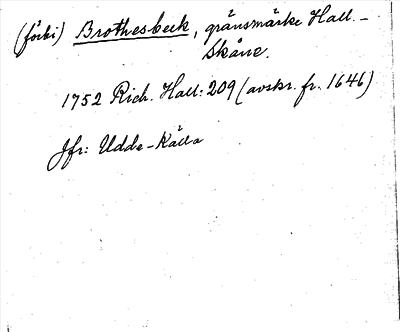 (förbi) Brothesbeck, gränsmärke Hall. -
Skåne.
1752 Rich. Hall: 209 (avskr. fr. 1646)
Jfr: Udde-Källa